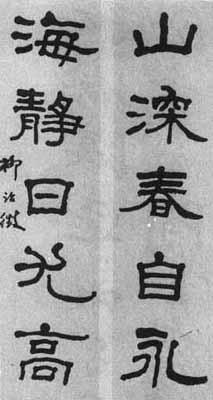 山深春自永
海靜日光高
柳詒徵